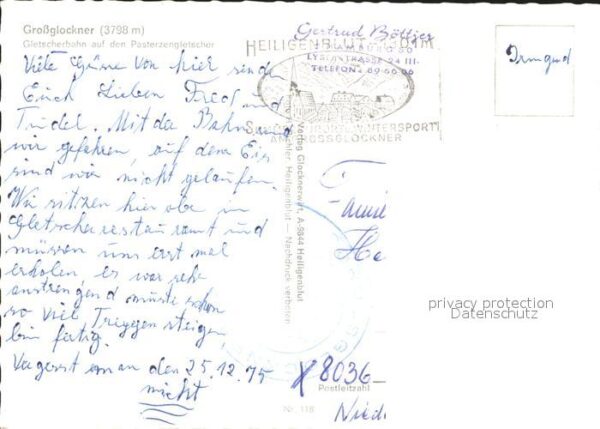 Großglockner (3798 m)
Gletscherbahn auf den Pasterzengletscher
Viele Grüße von hier sende
Euch Lieben Fred und
Trudel. Mit der Bahn sind
wir gefahren, auf dem Eis
sind wir nicht gelaufen.
Wir sitzen hier oben in
Gletscherrestaurant und
müssen uns erst mal
erholen, es war sehr
anstrengend müste schon
so viel Treppen steigen,
bin fertig.
Vergesst man den 25.12.75
nicht
Gertrud Böttjer
2 HAMBURG 50
LYSERSTRASSE 24 III
TELEFON 89 66 06
HEILIGENBLUT 1301 M
WINTERSPORT
AM GROSSGLOCKNER
Verlag Glocknerwirt, A-9844 Heiligenblut
Heiligenblut — Nachdruck verboten
Irmgard
Fami
He
privacy protection
Datenschutz
X 8036
Postleitzahl
Nied
Nr. 118